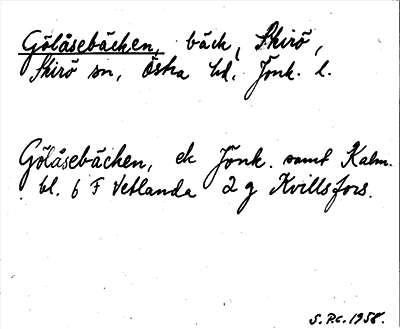 Gölåsebäcken, bäck, Skirö,
Skirö sn, Östra hd, Jönk. l.
Gölåsebäcken, ek Jönk. samt Kalm.
bl. 6 F Vetlanda 2 g Kvillsfors.
S.P.C. 1958.